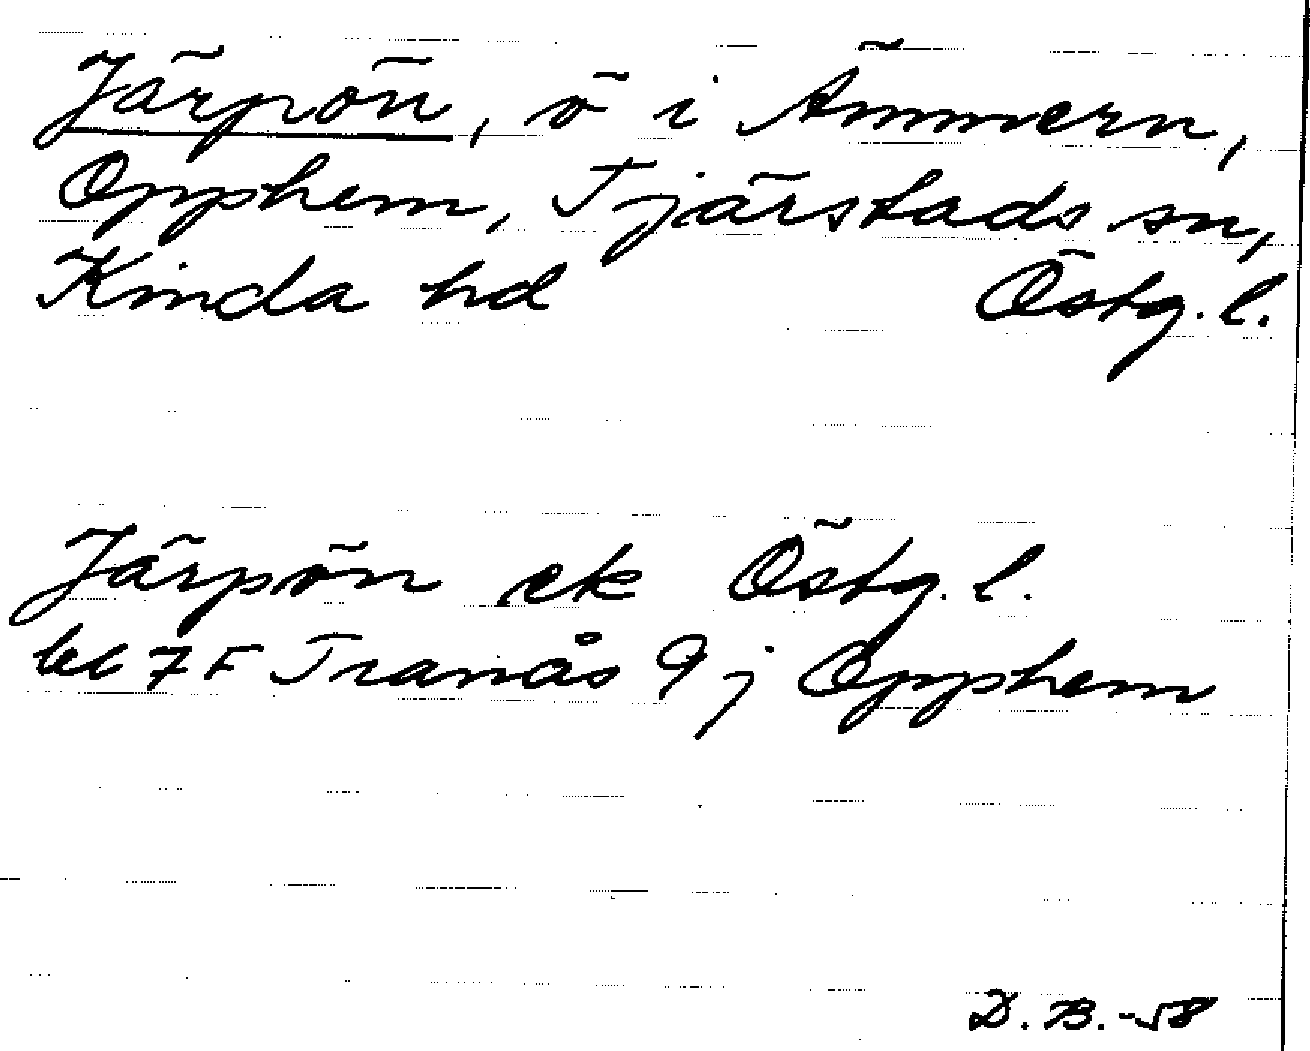 Järpön, ö i Ämmern,
Opphem, Tjärstads sn,
Kinda hd Östg. l.
Järpön ek Östg. l.
bl 7F Tranås 9 j Opphem
D. B. -58